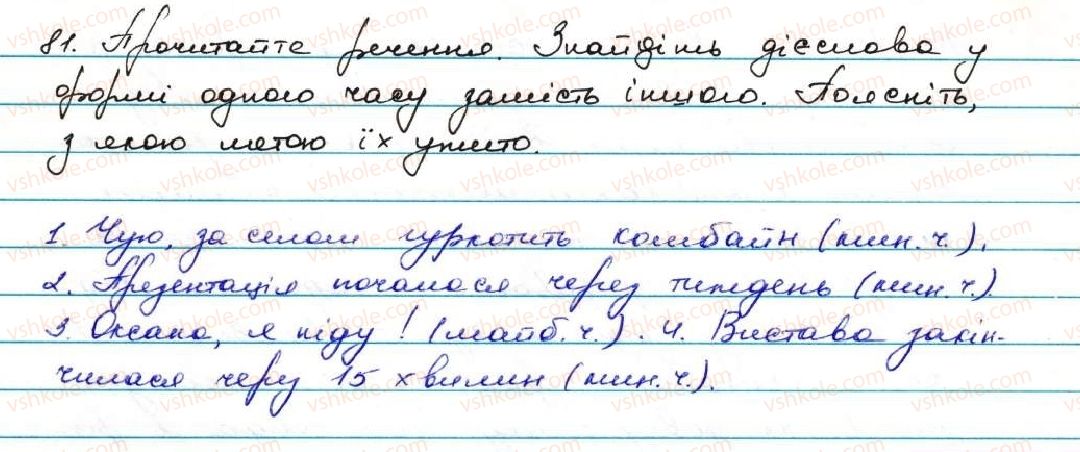 81. Прочитайте речення. Знайдіть дієслова у
формі одного часу замість іншого. Поясніть,
з якою метою їх ужито.
1. Чую, за селом гуркотить комбайн (мин. ч.).
2. Презентація почалася через тиждень (мин. ч.).
3. Оксано, я піду! (майб. ч.). 4. Вистава закін-
чилася через 15 хвилин (мин. ч.).